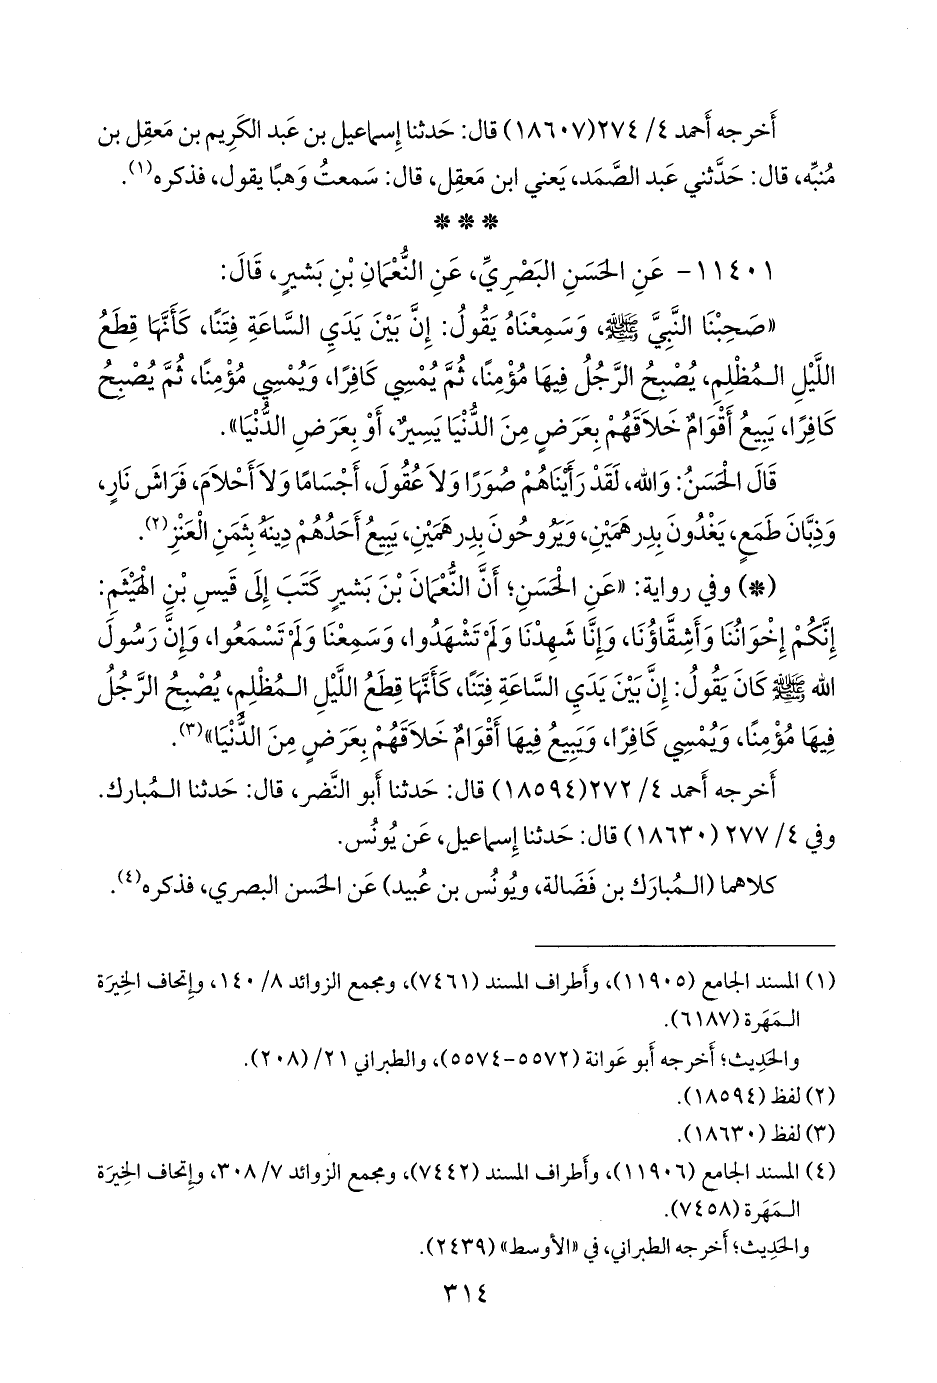 أَخرجه أَحمد ٤/ ٢٧٤(١٨٦٠٧) قال: حَدثنا إِسماعيل بن عَبد الكَرِيم بن مَعقِل بن
مُنبِّه، قال: حَدَّثني عَبد الصَّمَد، يَعني ابن مَعقِل، قال: سَمعتُ وَهبًا يقول، فذكره(١).
* * *
١١٤٠١- عَنِ الحَسَنِ البَصْرِيِّ، عَنِ النُّعْمَانِ بْنِ بَشيرٍ، قَالَ:
«صَحِبْنَا النَّبِيَّ ﷺ، وَسَمِعْنَاهُ يَقُولُ: إِنَّ بَيْنَ يَدَيِ السَّاعَةِ فِتَنًا، كَأَنَّهَا قِطَعُ
اللَّيْلِ الـمُظْلِمِ، يُصْبِحُ الرَّجُلُ فِيهَا مُؤْمِنًا، ثُمَّ يُمْسِي كَافِرًا، وَيُمْسِي مُؤْمِنًا، ثُمَّ يُصْبِحُ
كَافِرًا، يَبِيعُ أَقْوَامٌ خَلَاقَهُمْ بِعَرَضٍ مِنَ الدُّنْيَا يَسِيرٌ، أَوْ بِعَرَضِ الدُّنْيَا».
قَالَ الْحَسَنُ: وَالله، لَقَدْ رَأَيْنَاهُمْ صُوَرًا وَلاَ عُقُولَ، أَجْسَامًا وَلاَ أَحْلاَمَ، فَرَاشَ نَارٍ،
وَذِبَّانَ طَمَعٍ، يَغْدُونَ بِدِرهَمَيْنِ، وَيَرُوحُونَ بِدِرهَمَيْنِ، يَبِيعُ أَحَدُهُمْ دِينَهُ بِثَمَنِ الْعَنْزِ(٢).
(*) وفي رواية: «عَنِ الحَسَنِ؛ أَنَّ النُّعْمَانَ بْنَ بَشيرٍ كَتَبَ إِلَى قَيسِ بْنِ الهَيْثَمِ:
إِنَّكُمْ إِخْوَانُنَا وَأَشِقَّاؤُنَا، وَإِنَّا شَهِدْنَا وَلَمْ تَشْهَدُوا، وَسَمِعْنَا وَلَمْ تَسْمَعُوا، وَإِنَّ رَسُولَ
الله ﷺ كَانَ يَقُولُ: إِنَّ بَيْنَ يَدَيِ السَّاعَةِ فِتَنًا، كَأَنَّهَا قِطَعُ اللَّيْلِ الـمُظْلِمِ، يُصْبِحُ الرَّجُلُ
فِيهَا مُؤْمِنًا، وَيُمْسِي كَافِرًا، وَيَبِيعُ فِيهَا أَقْوَامٌ خَلَاقَهُمْ بِعَرَضٍ مِنَ الدُّنْيَا»(٣).
أَخرجه أَحمد ٤/ ٢٧٢(١٨٥٩٤) قال: حَدثنا أَبو النَّضر، قال: حَدثنا الـمُبارك.
وفي ٤/ ٢٧٧ (١٨٦٣٠) قال: حَدثنا إِسماعيل، عَن يُونُس.
كلاهما (الـمُبارَك بن فَضَالة، ويُونُس بن عُبيد) عَن الحَسن البصري، فذكره(٤).
(١) المسند الجامع (١١٩٠٥)، وأَطراف المسند (٧٤٦١)، ومجمع الزوائد ٨/ ١٤٠، وإِتحاف الخِيرَة
الـمَهَرة (٦١٨٧).
والحَدِيث؛ أَخرجه أَبو عَوانة (٥٥٧٢-٥٥٧٤)، والطبراني ٢١/ (٢٠٨).
(٢) لفظ (١٨٥٩٤).
(٣) لفظ (١٨٦٣٠).
(٤) المسند الجامع (١١٩٠٦)، وأَطراف المسند (٧٤٤٢)، ومجمع الزوائد ٧/ ٣٠٨، وإِتحاف الخِيرَة
الـمَهَرة (٧٤٥٨).
والحَدِيث؛ أَخرجه الطبراني، في «الأَوسط» (٢٤٣٩).
٣١٤